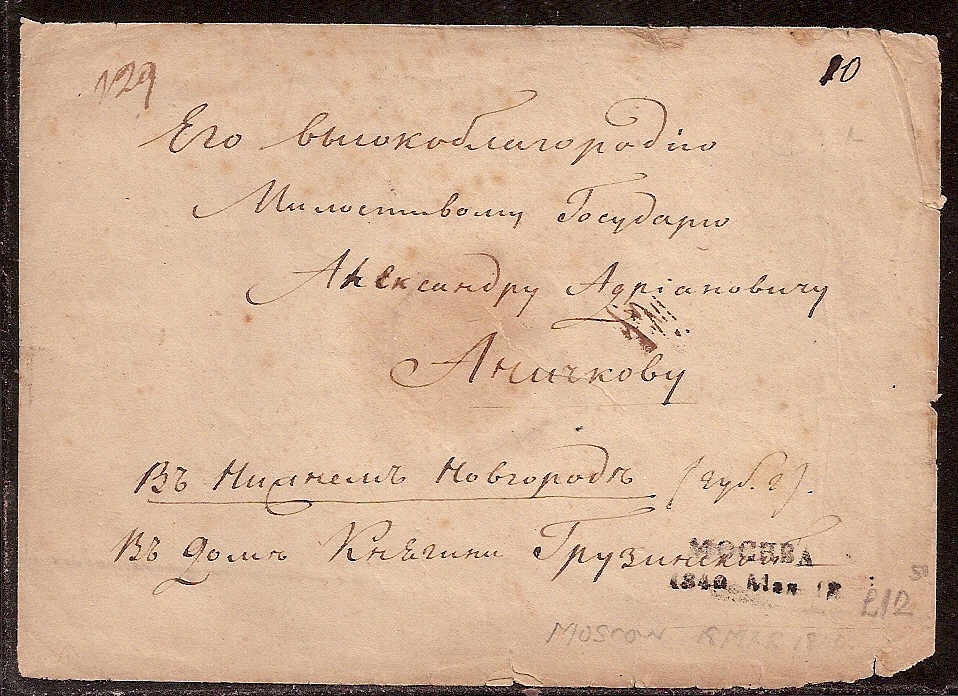 N29
10
Его высокоблагородію
Милостивому Государю
Александру Адріановичу
Аничкову
Въ Нижнемъ Новгородѣ (губ. г).
Въ домѣ Княгини Грузинской
МОСКВА
1840
£12
MOSCOW